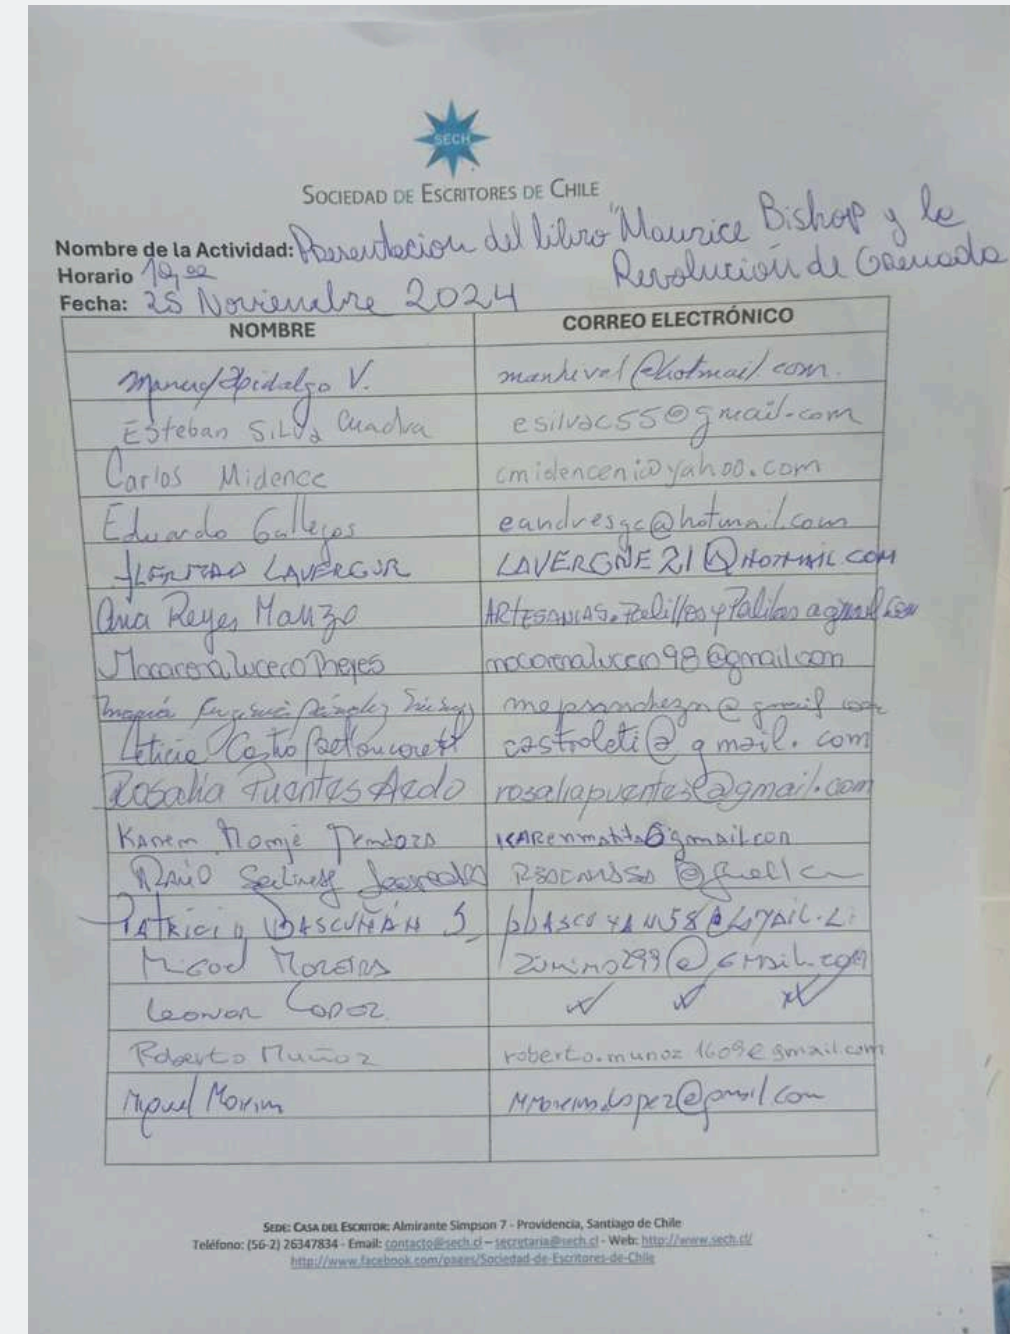 SECH
SOCIEDAD DE ESCRITORES DE CHILE
Nombre de la Actividad: Presentacion del libro "Maurice Bishop y la
Revolución de Granada
Horario 19,00
Fecha: 25 Noviembre 2024
NOMBRE CORREO ELECTRÓNICO
Manuel Hidalgo V. manhival@hotmail.com.
Esteban Silva Cuadra esilvac55@gmail.com
Carlos Midence cmidenceni@yahoo.com
Eduardo Gallegos eandresgc@hotmail.com
LAVERGNE21@HOTMAIL.COM
Ana Reyes Manzo ARTESANIAS.Palillos y Palitos a gmail.com
Macarena Lucero macarenalucero98@gmail.com
María Eugenia @gmail.com
Leticia Castro castroleti@gmail.com
Rosalia Puentes Aedo @gmail.com
Karem @gmail.con
PATRICIO BASCUÑÁN S
@GMAIL.COM
Leonor Lopez
Roberto Muñoz roberto.munoz1609@gmail.com
Miguel @gmail.com
SEDE: CASA DEL ESCRITOR: Almirante Simpson 7 - Providencia, Santiago de Chile
Teléfono: (56-2) 26347834 - Email: contacto@sech.cl – secretaria@sech.cl - Web: http://www.sech.cl/
http://www.facebook.com/pages/Sociedad-de-Escritores-de-Chile